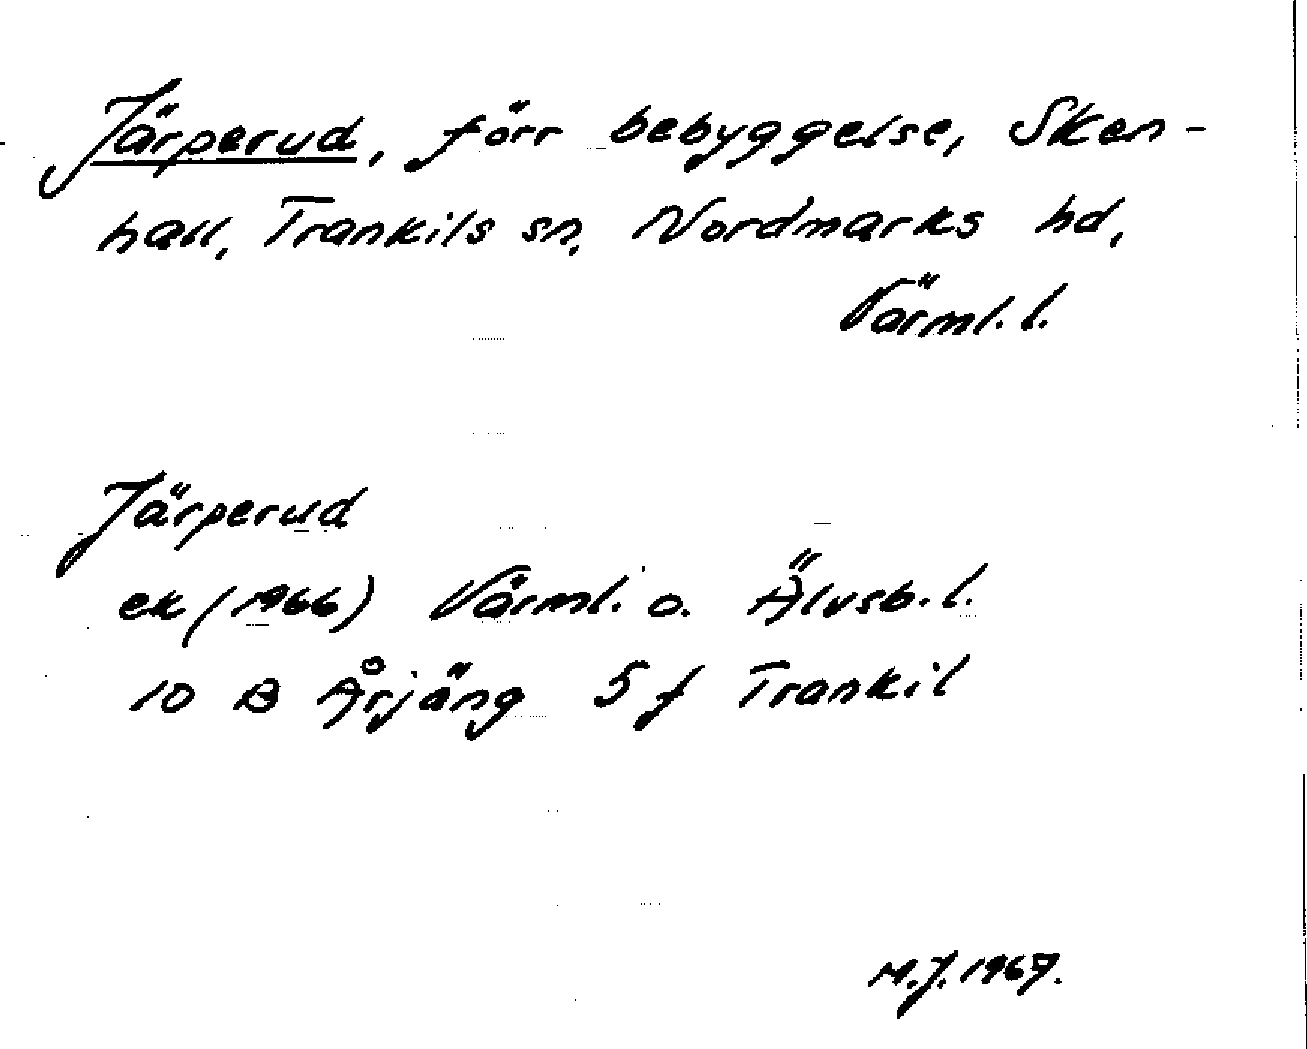 Järperud, förr bebyggelse, Sken-
hall, Trankils sn, Nordmarks hd,
Värml. l.
Järperud
ek (1966) Värml. o. Älvsb. l.
10 B Årjäng 5 f Trankil
M.J. 1967.